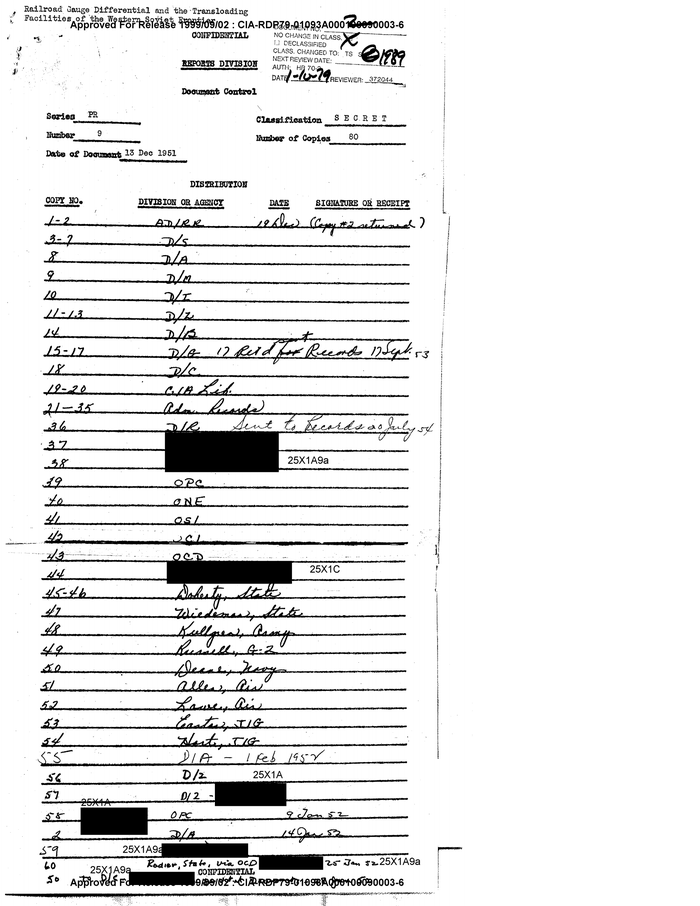 Railroad Gauge Differential and the Transloading
Facilities of the Western Soviet Frontier
Approved For Release 1999/09/02 : CIA-RDP79-01093A000100090003-6
CONFIDENTIAL
NO CHANGE IN CLASS.
DECLASSIFIED
CLASS. CHANGED TO: TS S C 1989
NEXT REVIEW DATE:
AUTH: HR 70-2
DATE 1-10-79 REVIEWER: 372044
REPORTS DIVISION
Document Control
Series PR
Classification S E C R E T
Number 9
Number of Copies 80
Date of Document 13 Dec 1951
DISTRIBUTION
COPY NO. DIVISION OR AGENCY DATE SIGNATURE OR RECEIPT
1-2 AD/RR 19 Dec (Copy #2 returned)
3-7 D/S
8 D/A
9 D/M
10 D/I
11-13 D/Z
14 D/B
15-17 D/G 17 Ret'd for Records 17 Sept. 53
18 D/C
19-20 CIA Lib.
21-35 Adm. Records
36 D/R Sent to Records 20 July 54
37
38 25X1A9a
39 OPC
40 ONE
41 OSI
42 OCI
43 OCD
44 25X1C
45-46 Doherty, State
47 Wiedemar, State
48 Kullgren, Army
49 Russell, G-2
50 Navy
51 Allen, Air
52 Lowe, Air
53 Easter, JIG
54 JIG
55 D/A - 1 Feb 1952
56 D/Z 25X1A
57 D/Z -
25X1A
58 OPC 9 Jan 52
2 D/A 14 Jan 52
59 25X1A9a
60 State, via OCD 25 Jan 52 25X1A9a
25X1A9a CONFIDENTIAL
50
Approved For Release 1999/09/02 : CIA-RDP79-01093A000100090003-6